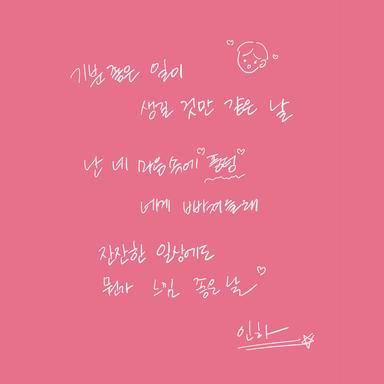 기분 좋은 일이
생길 것만 같은 날
난 네 마음속에 풍덩
네게 빠져들래
잔잔한 일상에도
뭔가 느낌 좋은 날
인하